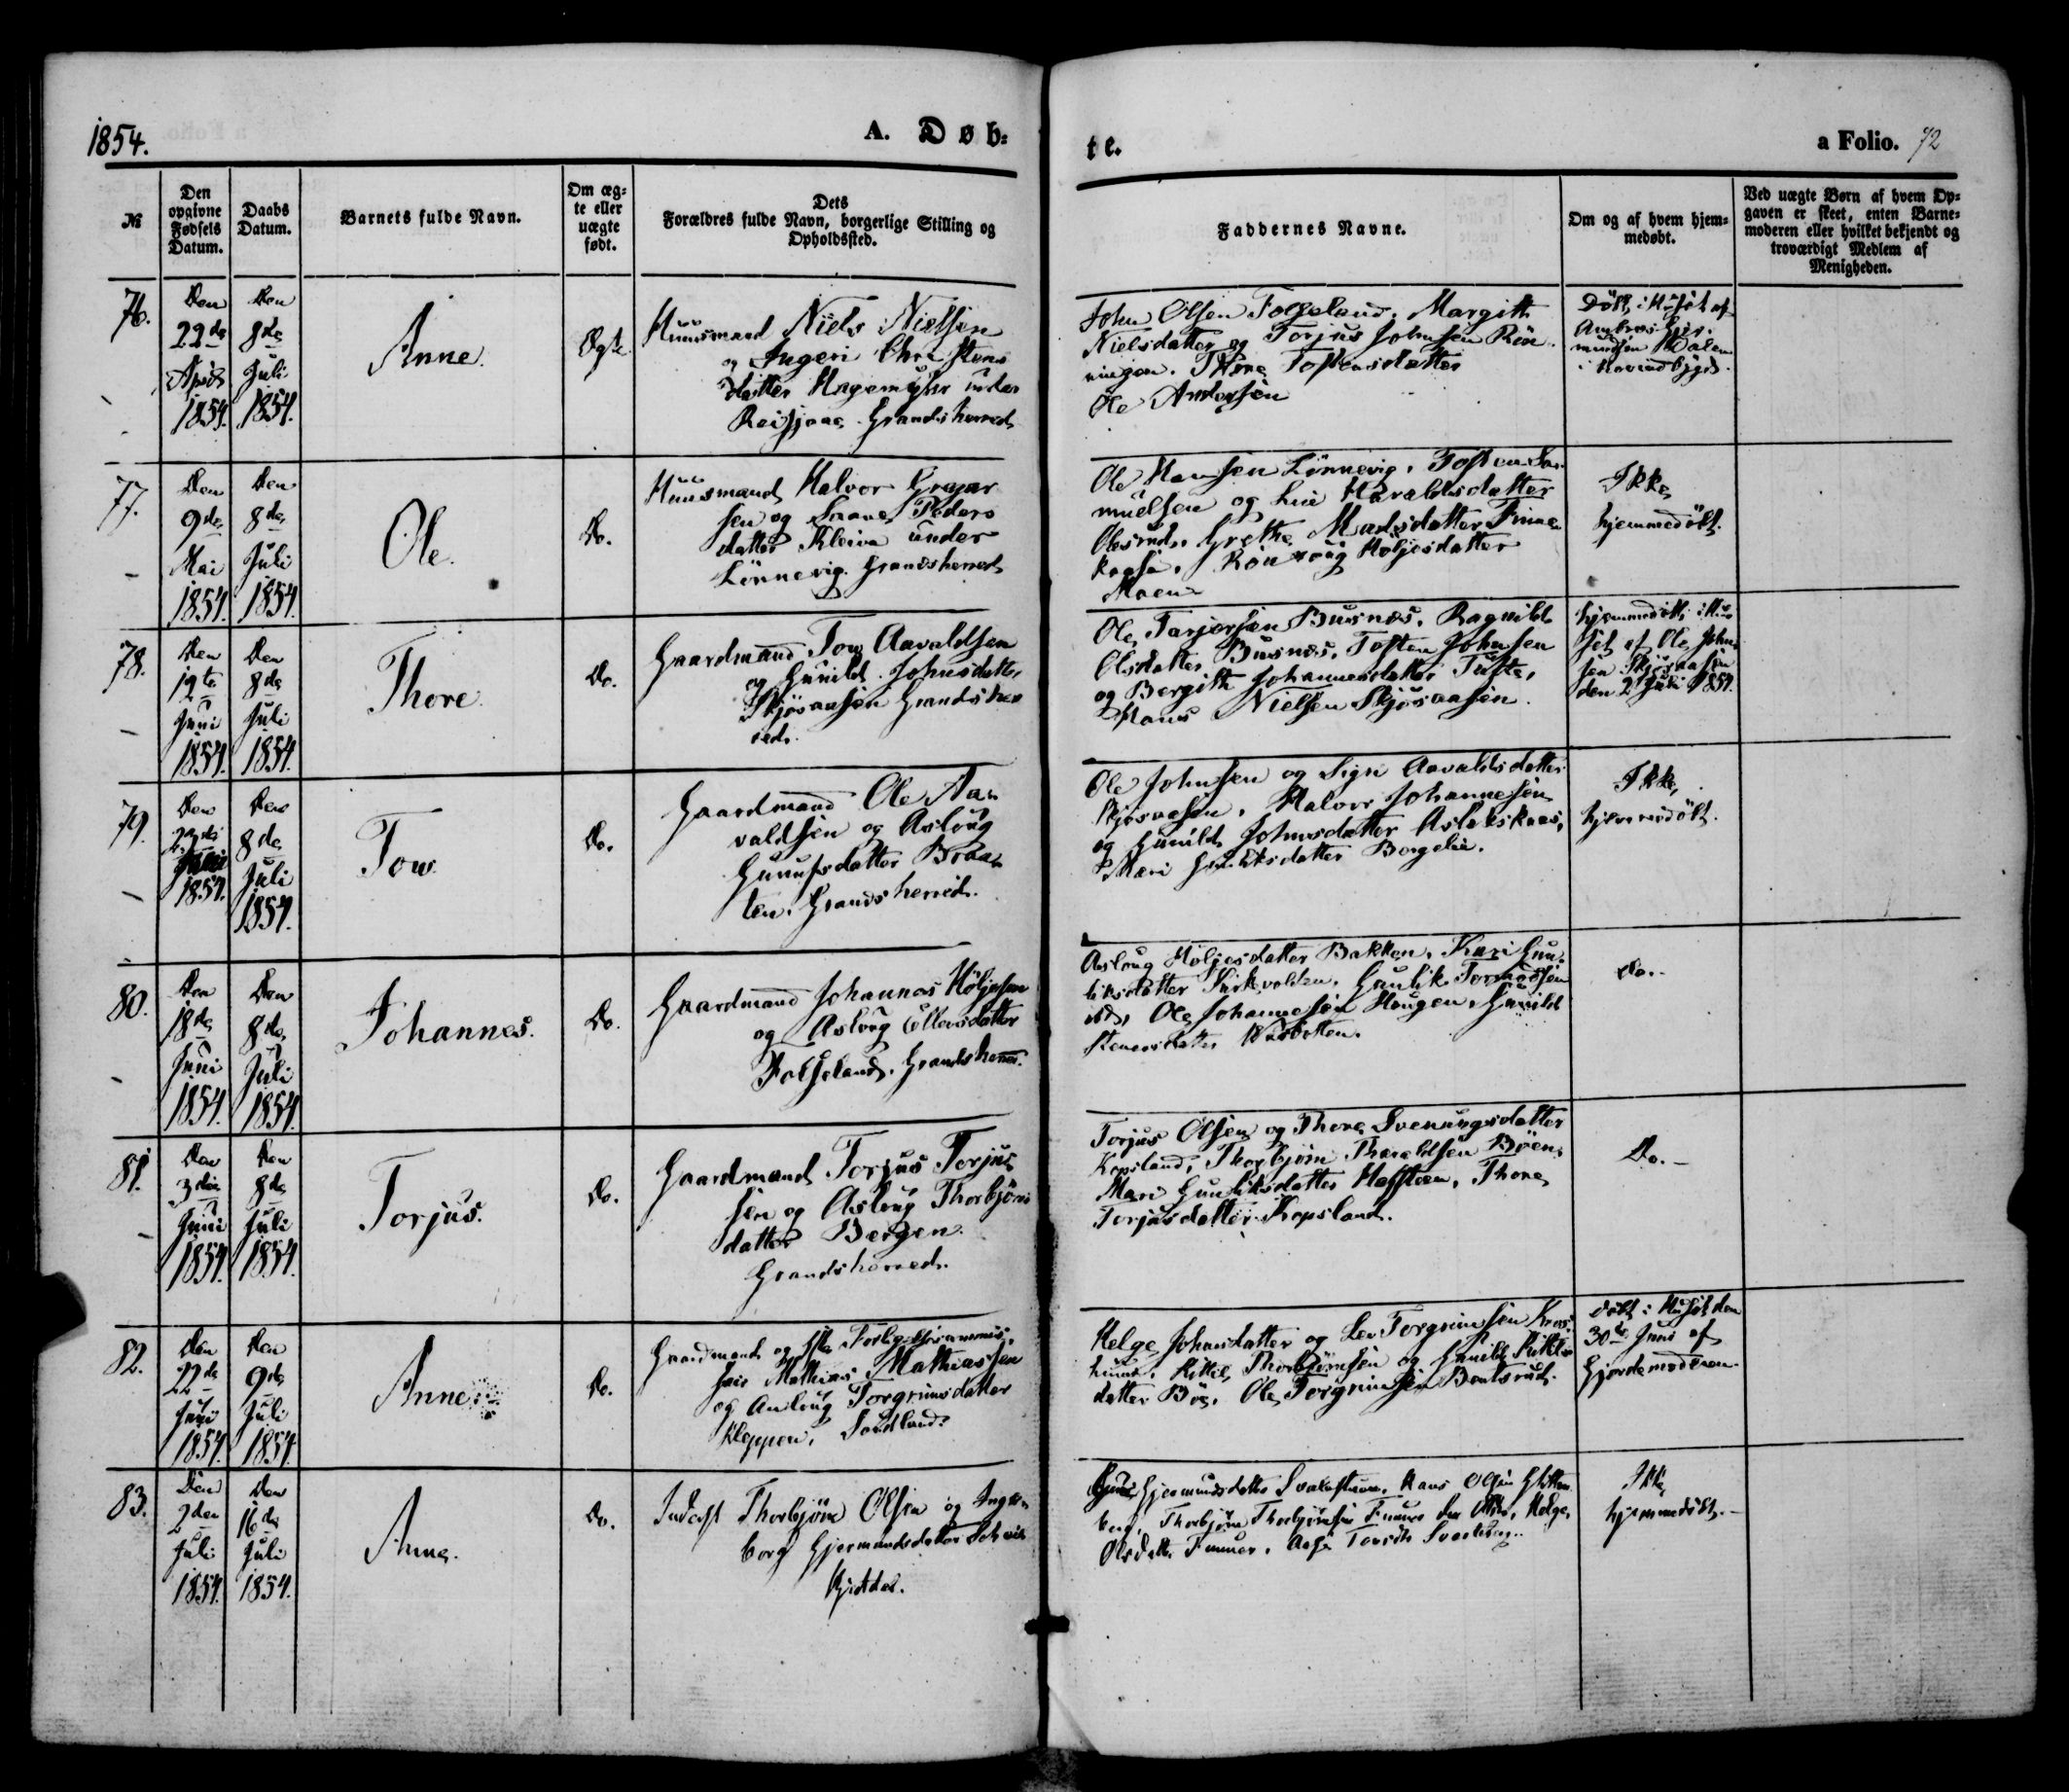 1854.
A. Døb-
te.
a Folio. 72
№
Den opgivne Fødsels Datum.
Daabs Datum.
Barnets fulde Navn.
Om ægte eller uægte født.
Dets Forældres fulde Navn, borgerlige Stilling og Opholdssted.
Faddernes Navne.
Om og af hvem hjemmedøbt.
Ved uægte Børn af hvem Opgaven er skeet, enten Barnemoderen eller hvilket bekjendt og troværdigt Medlem af Menigheden.
76.
Den
22de
April
1854.
Den
8de
Juli
1854.
Anne.
Ægte
Huusmand Niels Nielsen
og Ingeri Christens
datter Hagemyhr under
Reisjaae. Grandsherred
John Olsen Folseland, Margith
Nielsdatter og Torjus Johnsen Røn
ningen. Thone Tostensdatter
Ole Andersen
Døbt i Huset af
i Hovindbygd.
77.
Den
9de
Mai
1854.
Den
8de
Juli
1854.
Ole.
Do.
Huusmand Halvor Gregar
sen og Peders
datter Kleiva under
Lønnevig. Grandsherred
Ole Hansen Lønnevig, Tosten Sa
muelsen og Haraldsdatter
Olesrud, Grethe Madsdatter
Rønnoug Høljesdatter
Moen
Ikke
hjemmedøbt.
78.
Den
19te
Juni
1854.
Den
8de
Juli
1854.
Thore.
Do.
Gaardmand Tov Aavaldsen
og Gunild Johnsdatter
Skjøsaasen Grandsher
red.
Ole Tarjersen Busnæs, Ragnild
Olsdatter Busnæs, Tosten Johnsen
og Bergith Johannesdatter Tufte,
Hans Nielsen Skjøsaasen.
hjemmedøbt i Hu
set af Ole John
sen Skjøsaasen
den 2 Juli 1854.
79.
Den
1854.
Den
8de
Juli
1854.
Tov.
Do.
Gaardmand Ole Aa
valdsen og Asloug
Gunufsdatter Braa
ten. Grandsherred.
Ole Johnsen og Sign Aavaldsdatter
Skjøsaasen, Halvor Johannesen
og Gunild Johnsdatter Aslakskaas,
Mari Gunliksdatter Bergelie.
Ikke
hjemmedøbt.
80.
Den
18de
Juni
1854.
Den
8de
Juli
1854.
Johannes.
Do.
Gaardmand Johannes Høljesen
og Asloug Ellevsdatter
Folseland. Grandsherred.
Asloug Høljesdatter Bakken, Kari Gun
liksdatter Kirkvolden, Gunlik Tormodsen
ibd, Ole Johannesen Haugen, Gunild
Do.
81.
Den
3die
Juni
1854.
Den
8de
Juli
1854.
Torjus.
Do.
Gaardmand Torjus Torjus
sen og Asloug Thorbjørns
datter Bergen.
Grandsherred.
Torjus Olsen og Thone Svenungsdatter
Kopsland, Thorbjørn Tharaldsen Bøen,
Mari Gunliksdatter Thone
Torjusdatter Kopsland.
Do.
82.
Den
22de
Juni
1854.
Den
9de
Juli
1854.
Anne.
Do.
Gaardmand og
Mathias Mathiassen
og Anloug Torgrimsdatter
Kleppen, Saudland.
Helge Johnsdatter og Lev Torgrimsen
Kittil Thorbjørnsen og Gunild Kittils
datter Bøe, Ole Torgrimsen
døbt i Huset den
30te Juni af
Gjordemoderen.
83.
Den
2den
Juli
1854.
Den
16de
Juli
1854.
Anne.
Do.
Inderst Thorbjørn Olsen og Inge
borg Gjermundsdatter
Gjermundsdatter Hans Olsen
Thorbjørn Thorbjørnsen Helge
Olsdatter
Ikke
hjemmedøbt.